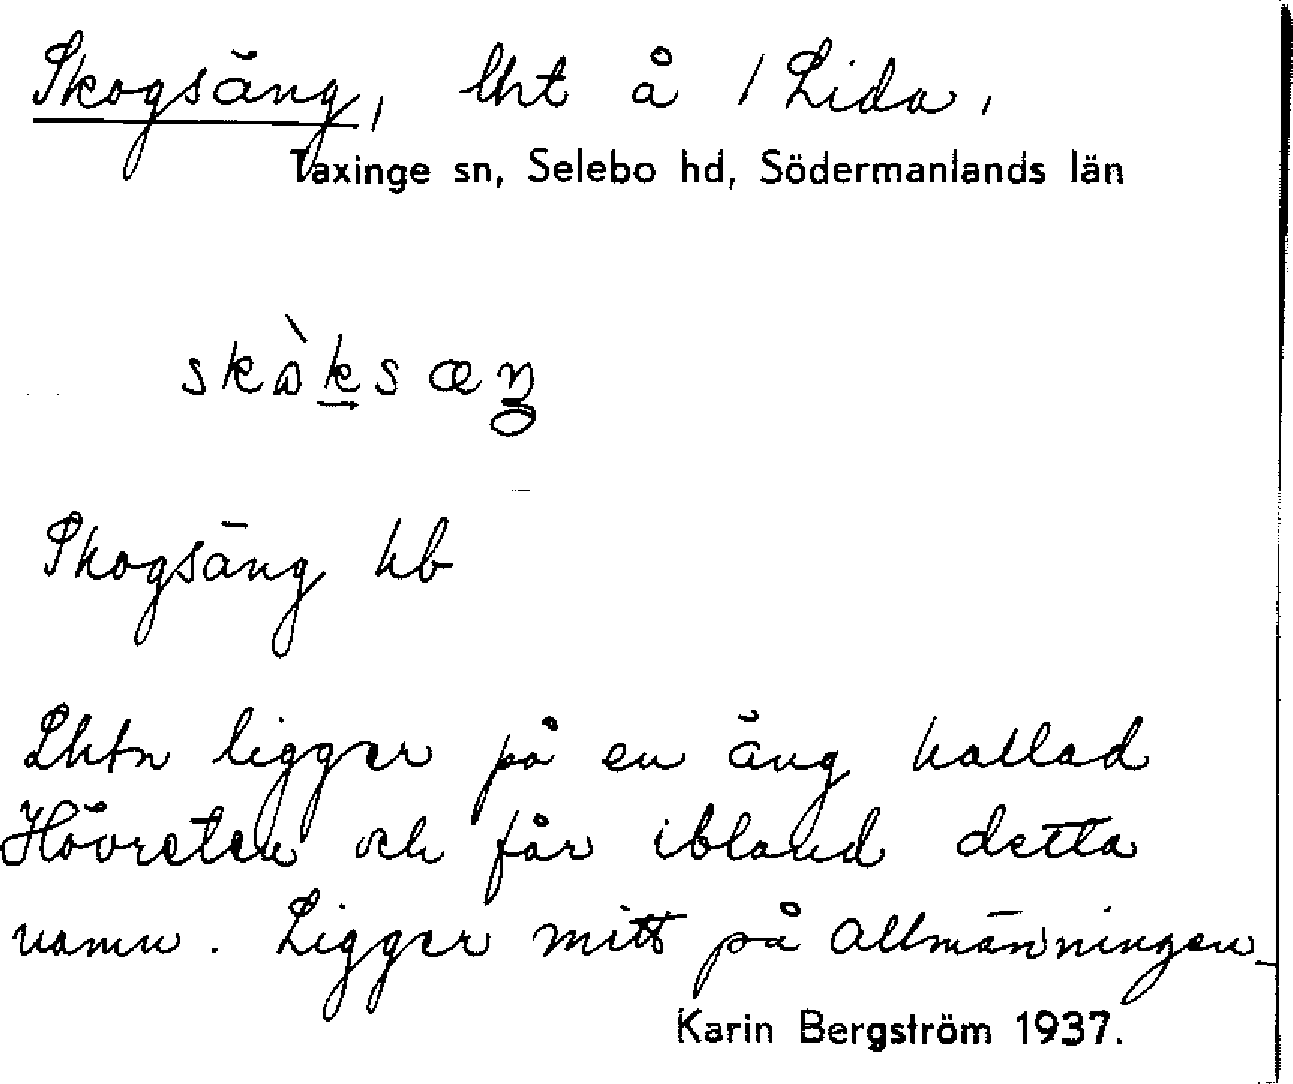 Skogsäng, lht å 1 Lida,
Taxinge sn, Selebo hd, Södermanlands län
skòksæŋ
Skogsäng hb
Lhtn ligger på en äng kallad
Hövreten och får ibland detta
namn. Ligger mitt på Allmänningen
Karin Bergström 1937.